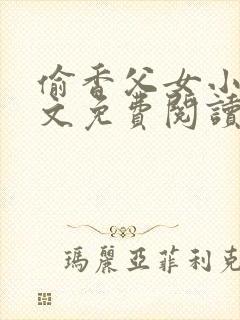 偷香父女小
文免費閱讀
瑪麗亞菲利克